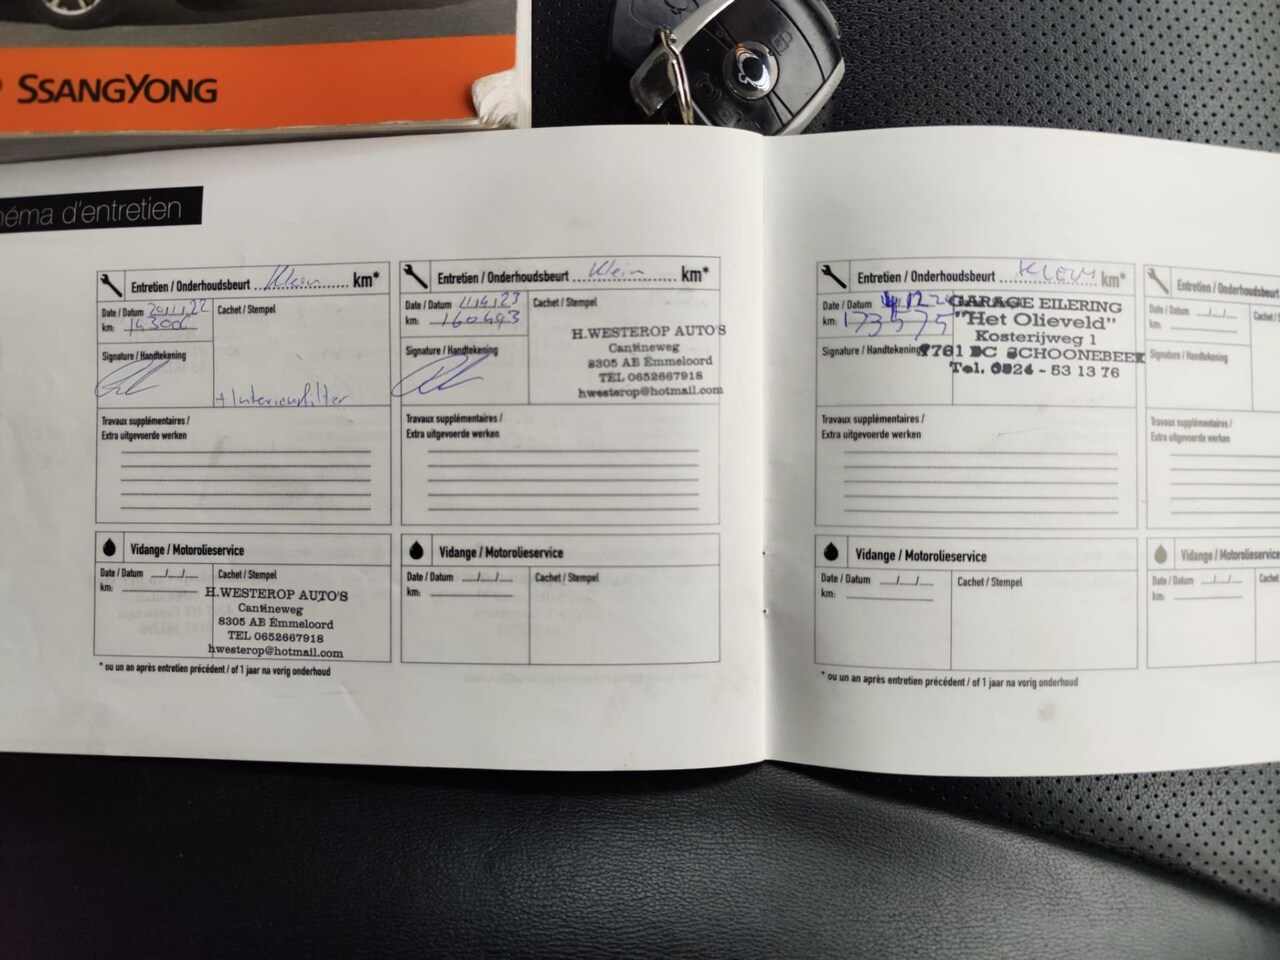 SSANGYONG
éma d'entretien
Entretien / Onderhoudsbeurt Klein km*
Date / Datum 20/1/22
km:
Cachet / Stempel
Signature / Handtekening
+ Interieurfilter
Travaux supplémentaires /
Extra uitgevoerde werken
Vidange / Motorolieservice
Date / Datum __/__/__
km:
Cachet / Stempel
H.WESTEROP AUTO'S
Cantineweg
8305 AB Emmeloord
TEL 0652667918
hwesterop@hotmail.com
* ou un an après entretien précédent / of 1 jaar na vorig onderhoud
Entretien / Onderhoudsbeurt Klein km*
Date / Datum 11/4/23
km: 160493
Cachet / Stempel
H.WESTEROP AUTO'S
Cantineweg
8305 AB Emmeloord
TEL 0652667918
hwesterop@hotmail.com
Signature / Handtekening
Travaux supplémentaires /
Extra uitgevoerde werken
Vidange / Motorolieservice
Date / Datum __/__/__
km:
Cachet / Stempel
Entretien / Onderhoudsbeurt KLEIN km*
Date / Datum
km: 173575
GARAGE EILERING
"Het Olieveld"
Kosterijweg 1
7761 DC SCHOONEBEEK
Tel. 0524 - 53 13 76
Signature / Handtekening
Travaux supplémentaires /
Extra uitgevoerde werken
Vidange / Motorolieservice
Date / Datum __/__/__
km:
Cachet / Stempel
* ou un an après entretien précédent / of 1 jaar na vorig onderhoud
Entretien / Onderhoudsbeurt
Date / Datum __/__/__
km:
Signature / Handtekening
Travaux supplémentaires /
Extra uitgevoerde werken
Vidange / Motorolieservice
Date / Datum __/__/__
km: